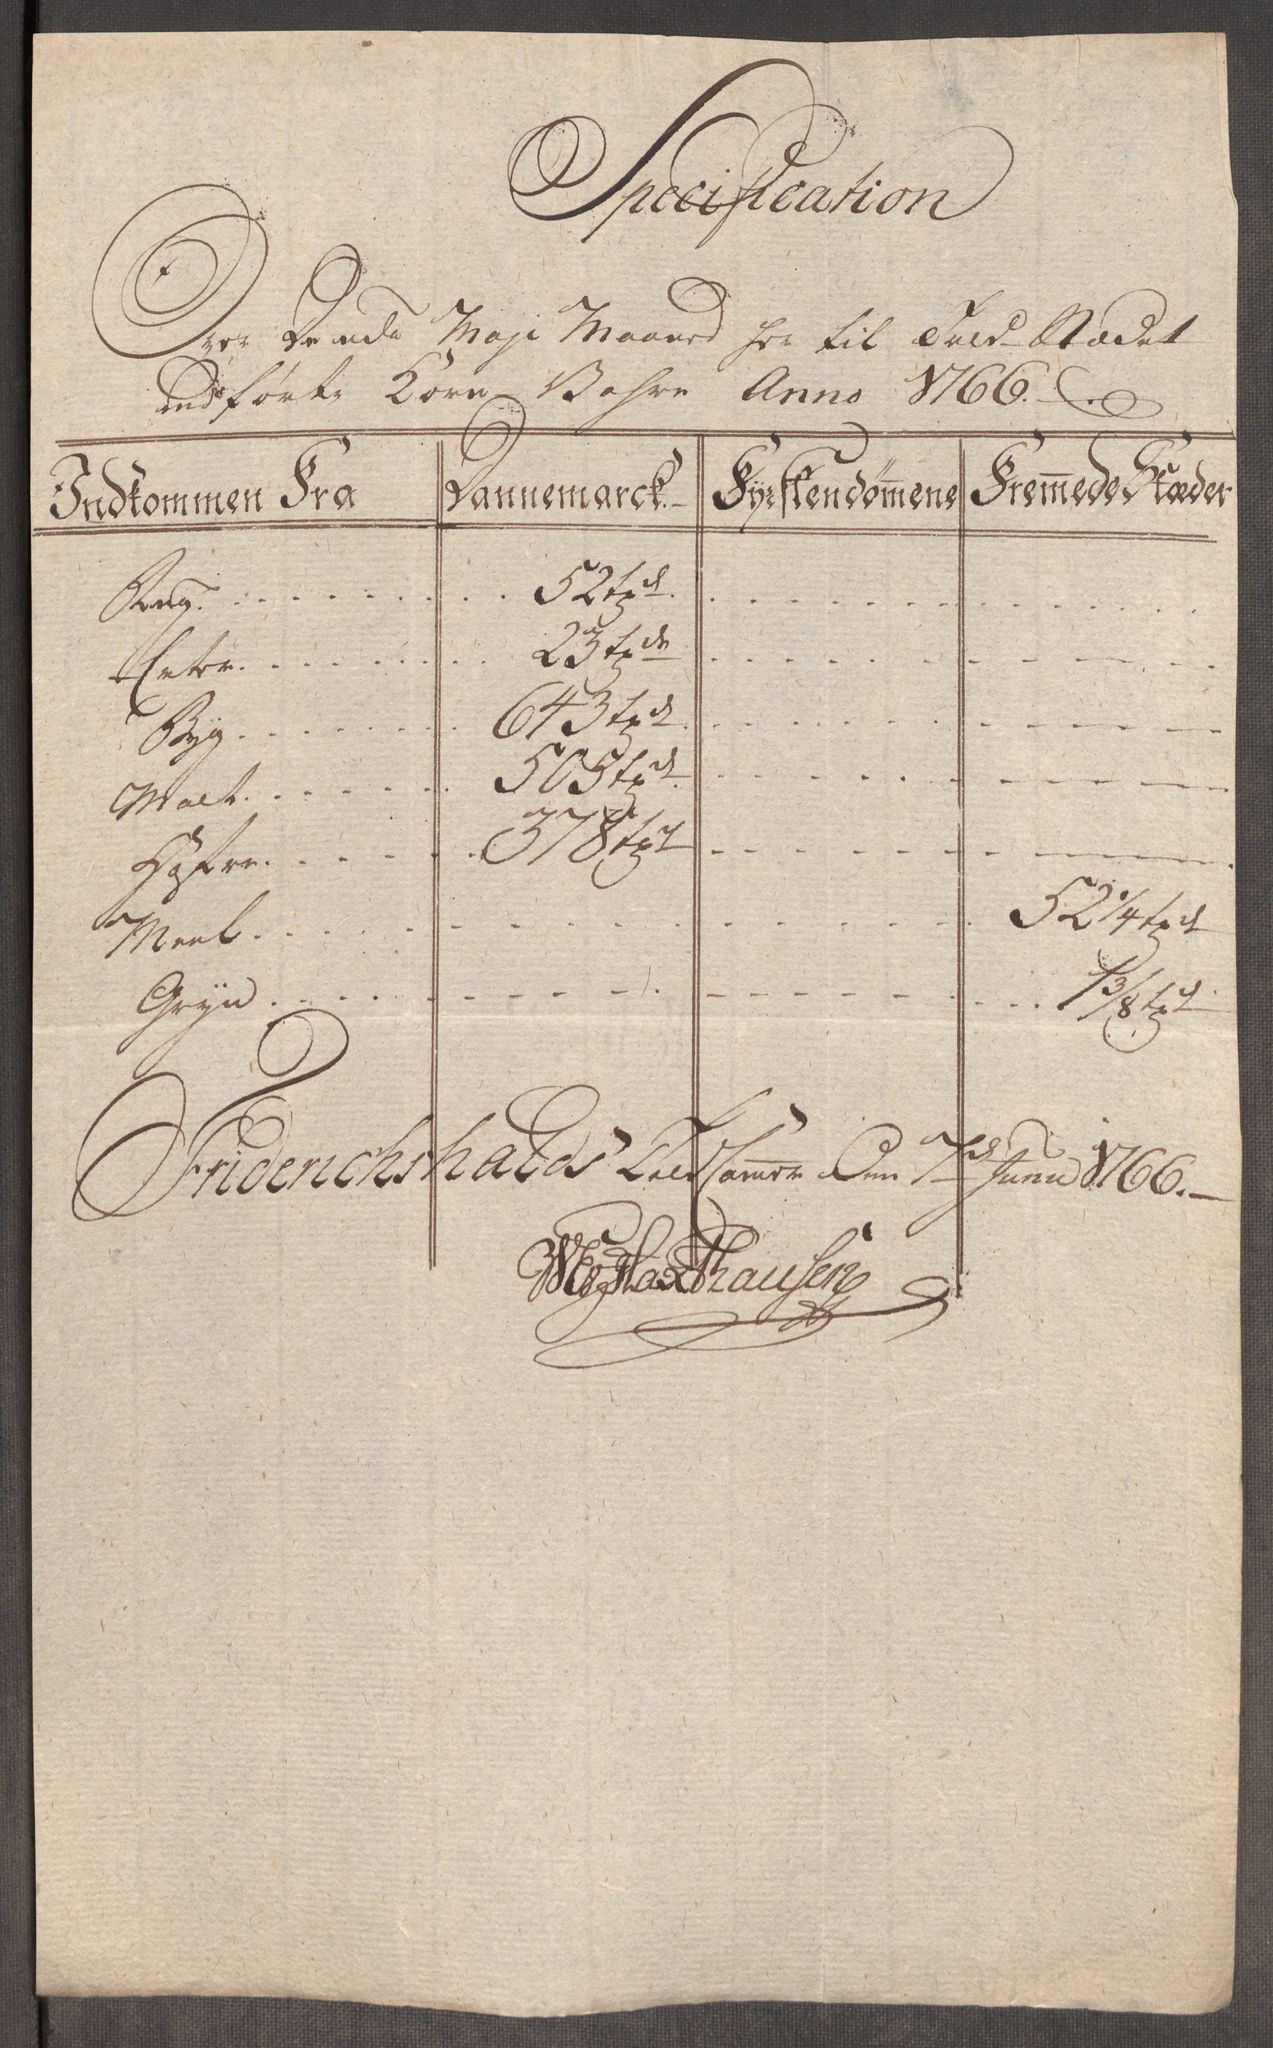 Specification
Over Dende Maji Maaned her til Told-Stædet
indførte Korn Vahre Anno 1766.
Indkommen Fra Dannemarck.- Fyrstendømmene Fremmede Stæder
Rug. 52 tdr
Erter. 23 tdr
Byg 643 tdr
Malt. 505 tdr
Hafre. 378 tdr
Meel. 52 1/4 tdr
Gryn. 1 3/8 tdr
Friderichshalds Toldkamer Den 7de Junii 1766.-